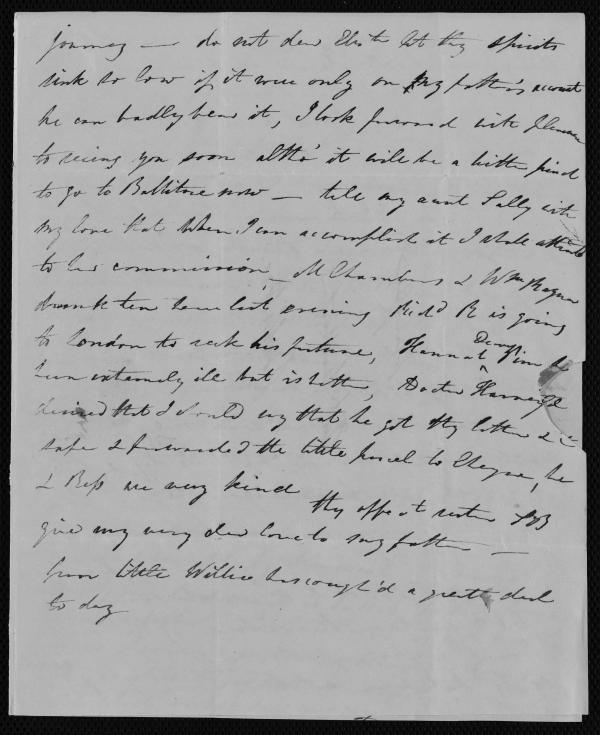 journey — do not dear Eliz'th let thy spirits
sink so low if it were only on my father's account
he can badly bear it, I look forward with pleasure
to seeing you soon altho' it will be a bitter kind
to go to Ballitore now — tell my aunt Sally with
my love that when I can accomplish it I shall attend
to her commission — M Chambers & Wm
drank tea here last evening Richd R is going
to London to seek his fortune, Hannah
been extremely ill but is better, Doctor
desired that I should say that he got thy letter &c
safe & forwarded the little parcel to Cheyne, he
& Bess are very kind
thy affect sister
give my very dear love to my father —
poor little Willie has cough'd a great deal
to day